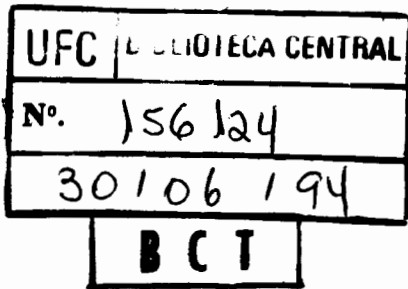 UFC BIBLIOTECA CENTRAL
Nº. 156124
30/06/94
BCT